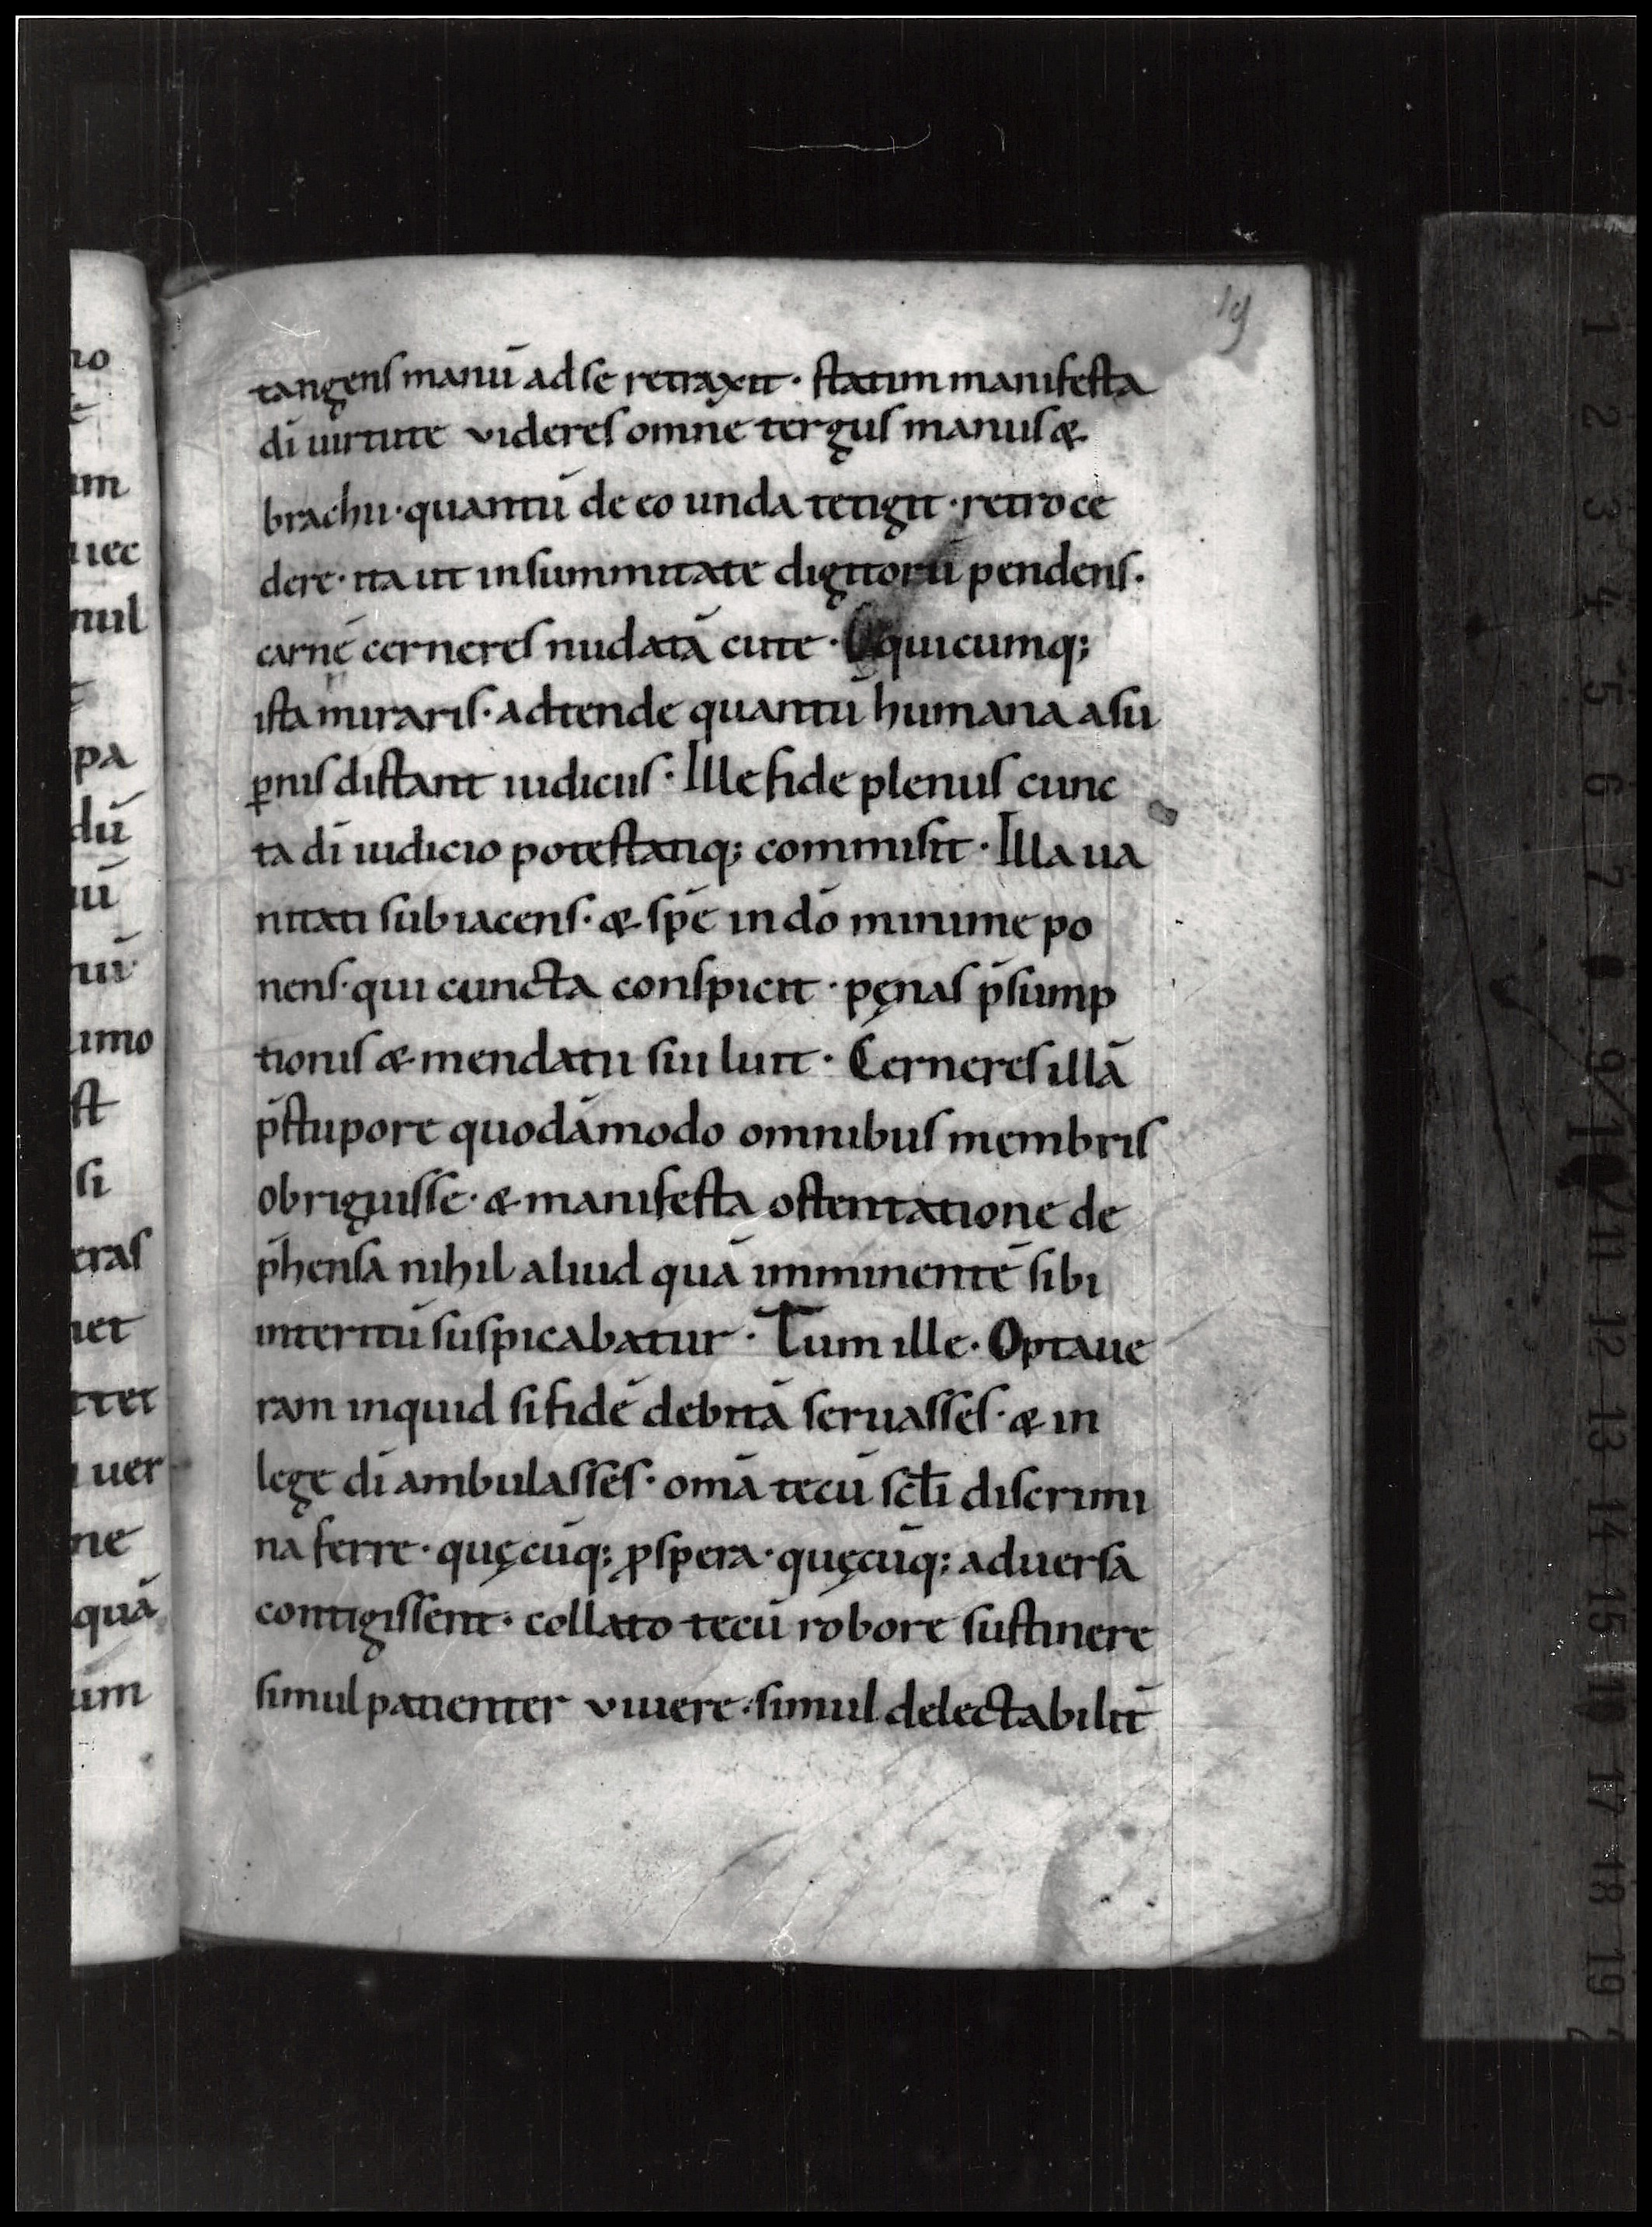 19
tangens manū ad se retraxit · statim manifesta
dī uirtute videres omne tergus manus &
brachii · quantū de eo unda tetigit · retroce
dere · ita ut in summitate digitorū pendens ·
carnē cerneres nudatā cute · O quicumq;
ista miraris · adtende quantū humana a su
ꝑnis distant iudiciis · Ille fide plenus cunc
ta dī iudicio potestatiq; commisit · Illa ua
nitati subiacens · & spē in dō minime po
nens · qui cuncta conspicit · pęnas p̄sump
tionis & mendatii sui luit · Cerneres illā
p̄stupore quodāmodo omnibus membris
obriguisse · & manifesta ostentatione de
p̄hensa nihil aliud quā imminentē sibi
interitū suspicabatur · Tum ille · Optaue
ram inquid si fidē debitā seruasses · & in
lege dī ambulasses · omā tecū scłi discrimi
na ferre · quęcūq; ꝓspera · quęcūq; aduersa
contigissent · collato tecū robore sustinere
simul patienter viuere · simul delectabilit̄
no
im
iec
nul
pa
dū
iū
imo
st
si
eras
uer
ne
quā
um
1 2 3 4 5 6 7 8 9 10 11 12 13 14 15 16 17 18 19